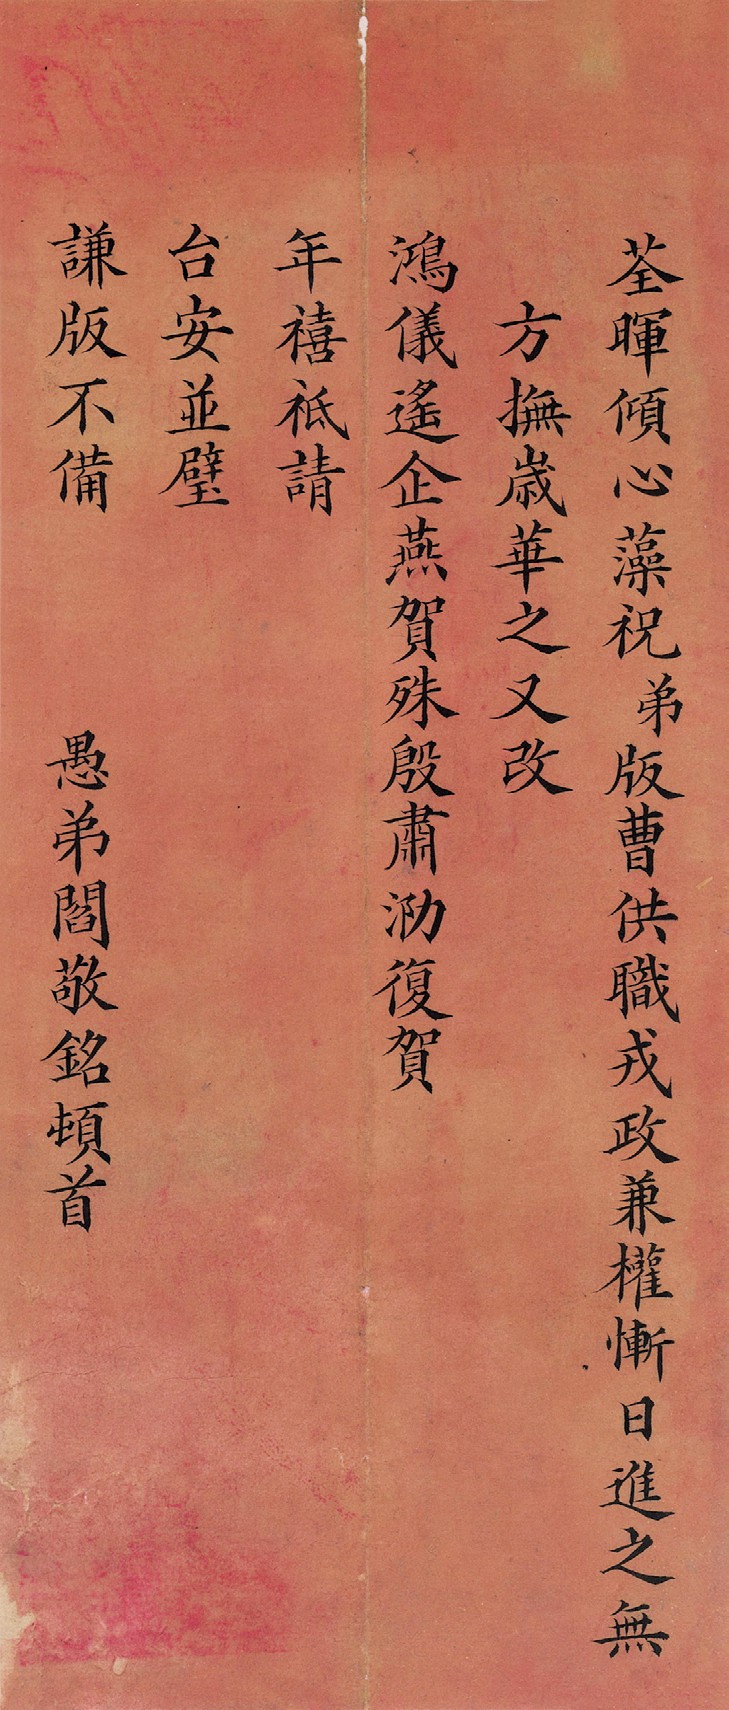 荃暉傾心藻祝弟版曹供職戎政兼權慚日進之無
方撫歲華之又改
鴻儀遙企燕賀殊殷肅泐復賀
年禧祗請
台安並璧
謙版不備
愚弟閻敬銘頓首